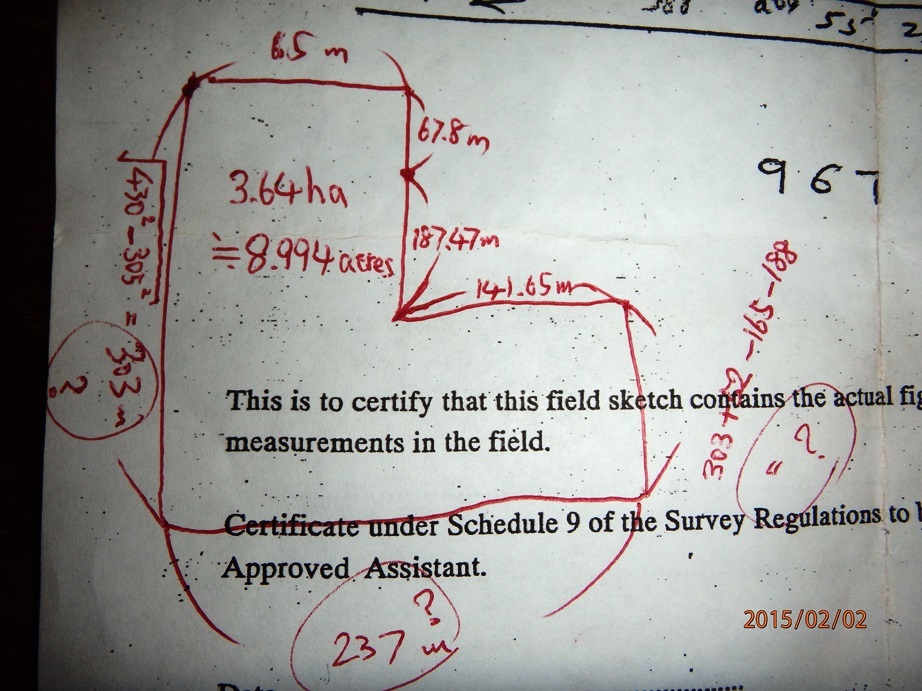 6.5 m
67.8 m
967
3.64 ha
≒ 8.994 acres
187.47 m
141.65 m
√430² - 305² =
303 m
?
This is to certify that this field sketch contains the actual fig
measurements in the field.
?
Certificate under Schedule 9 of the Survey Regulations to b
Approved Assistant.
?
237 m
2015/02/02